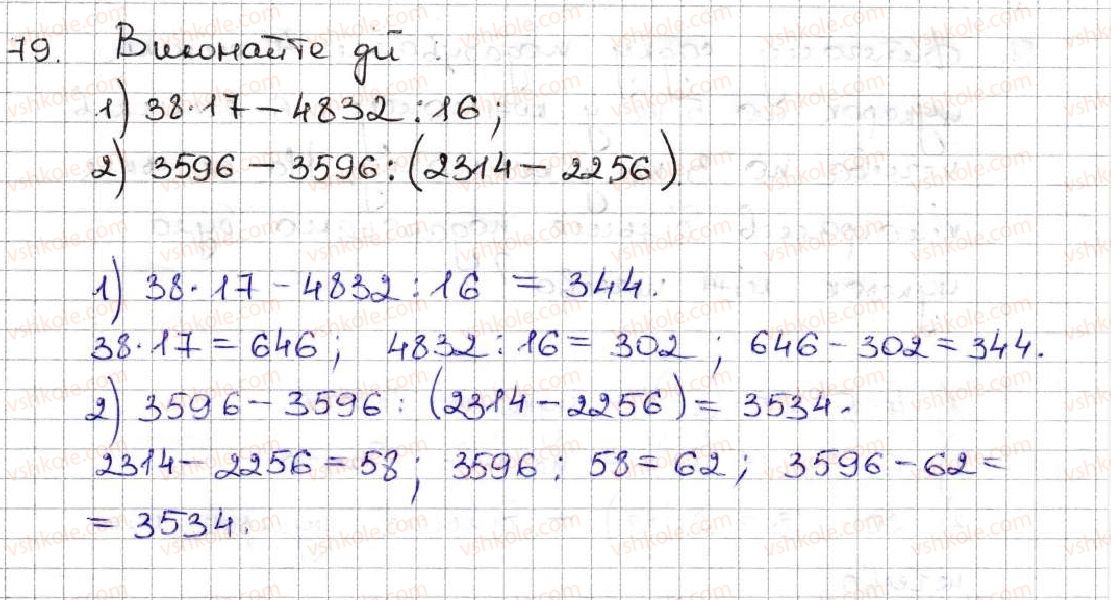 79. Виконайте дії
1) 38·17 - 4832 : 16;
2) 3596 - 3596 : (2314 - 2256)
1) 38·17 - 4832 : 16 = 344.
38·17 = 646; 4832 : 16 = 302; 646 - 302 = 344.
2) 3596 - 3596 : (2314 - 2256) = 3534.
2314 - 2256 = 58; 3596 : 58 = 62; 3596 - 62 =
= 3534.